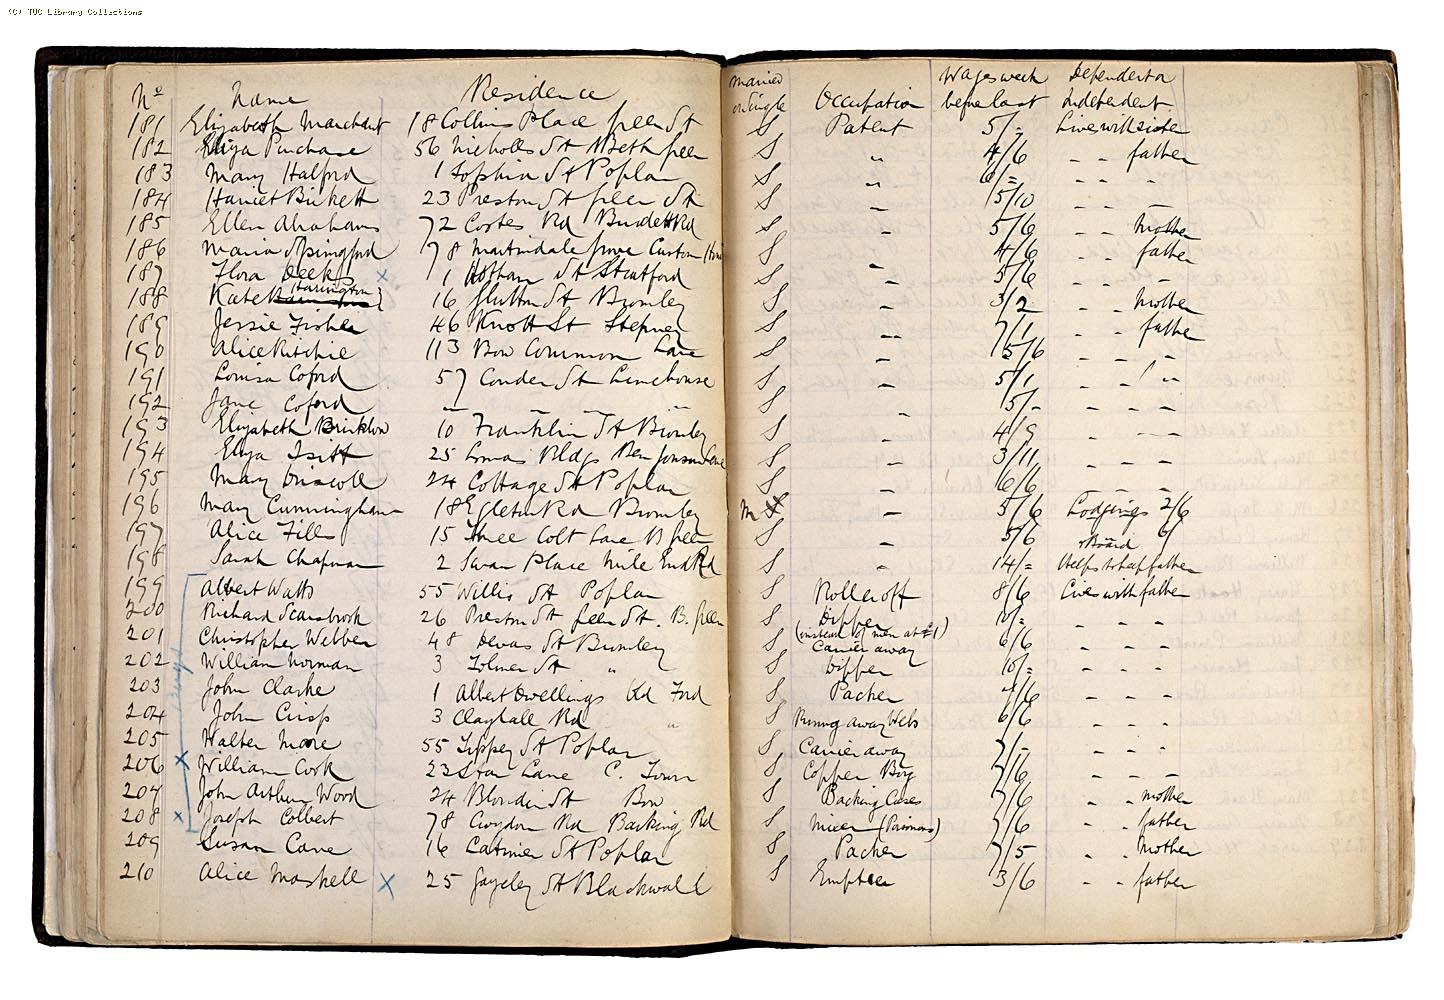 (C) TUC Library Collections
No Name Residence Married or Single Occupation Wages week before last Dependent or Independent
181 Elizabeth Marchant 18 Collins Place Green St S Patent 5/= Lives with sister
182 Eliza Purchase 56 Nicholls St Beth Green S " 4/6 - - father
183 Mary Halford 1 Sophia St Poplar S " 6/= - - -
184 Harriet Birkett 23 Preston St Green St S - 5/10 - - -
185 Ellen Abrahams 72 Coutes Rd Burdett Rd S - 5/6 - - Mother
186 Maria Spingford 78 Martindale Grove Custom House S - 4/6 - - father
187 Flora Deeks x 1 Hotham St Stratford S - 5/6 - - -
188 Kate Harrington 16 St Bromley S - 3/2 - - Mother
189 Jessie Fisher 46 Knott St Stepney S - 7/1 - - father
190 Alice Ritchie 113 Bow Common Lane S - 5/6 - - "
191 Louisa Coford 57 Conder St Limehouse S - 5/1 - - "
192 Jane Coford " - - " S - 5/- - - -
193 Elizabeth Brinklow 10 Franklin St Bromley S - 4/9 - - -
194 Eliza Isitt 25 Lomas Bldgs Ben Jonson Lane S - 3/11 - - -
195 Mary Driscoll 24 Cottage St Poplar S - 6/6 - - -
196 Mary Cunningham 18 Egleton Rd Bromley M - 5/6 Lodgings 2/6
197 Alice Fills 15 Three Colt Lane B Green S - 5/6 & Board 6/
198 Sarah Chapman 2 Swan Place Mile End Rd S " 14/= Helps to keep father
199 Albert Watts 55 Willis St Poplar S Rolleroff 8/6 Lives with father
200 Richard Scarsbrook 26 Preston St Green St. B. Green S Dipper 10/= - - - -
(instead of men at £1)
201 Christopher Webber 48 Devas St Bromley S Carrier away 6/6 - - -
202 William Norman 3 Tolmer St " S Dipper 10/= - - -
203 John Clarke 1 Albert Dwellings Old Ford S Packer 4/6 - - -
204 John Crisp 3 Rd " S Running away Webs 6/6 - - -
205 Walter More 55 Tippey St Poplar S Carrier away 7/- - - -
206 x William Cook 23 Star Lane C. Town S Copper Boy 7/6 - - -
207 John Arthur Wood 24 Blondin St Bow S Backing Cases 7/6 - - Mother
208 x Joseph Colbert 78 Croydon Rd Barking Rd S Mixer (Poisons) 7/6 - - father
209 Susan Cane 16 Latimer St Poplar S Packer 7/5 - - Mother
210 Alice Maskell x 25 Gayeley St Blackwall S Emptier 3/6 - - father